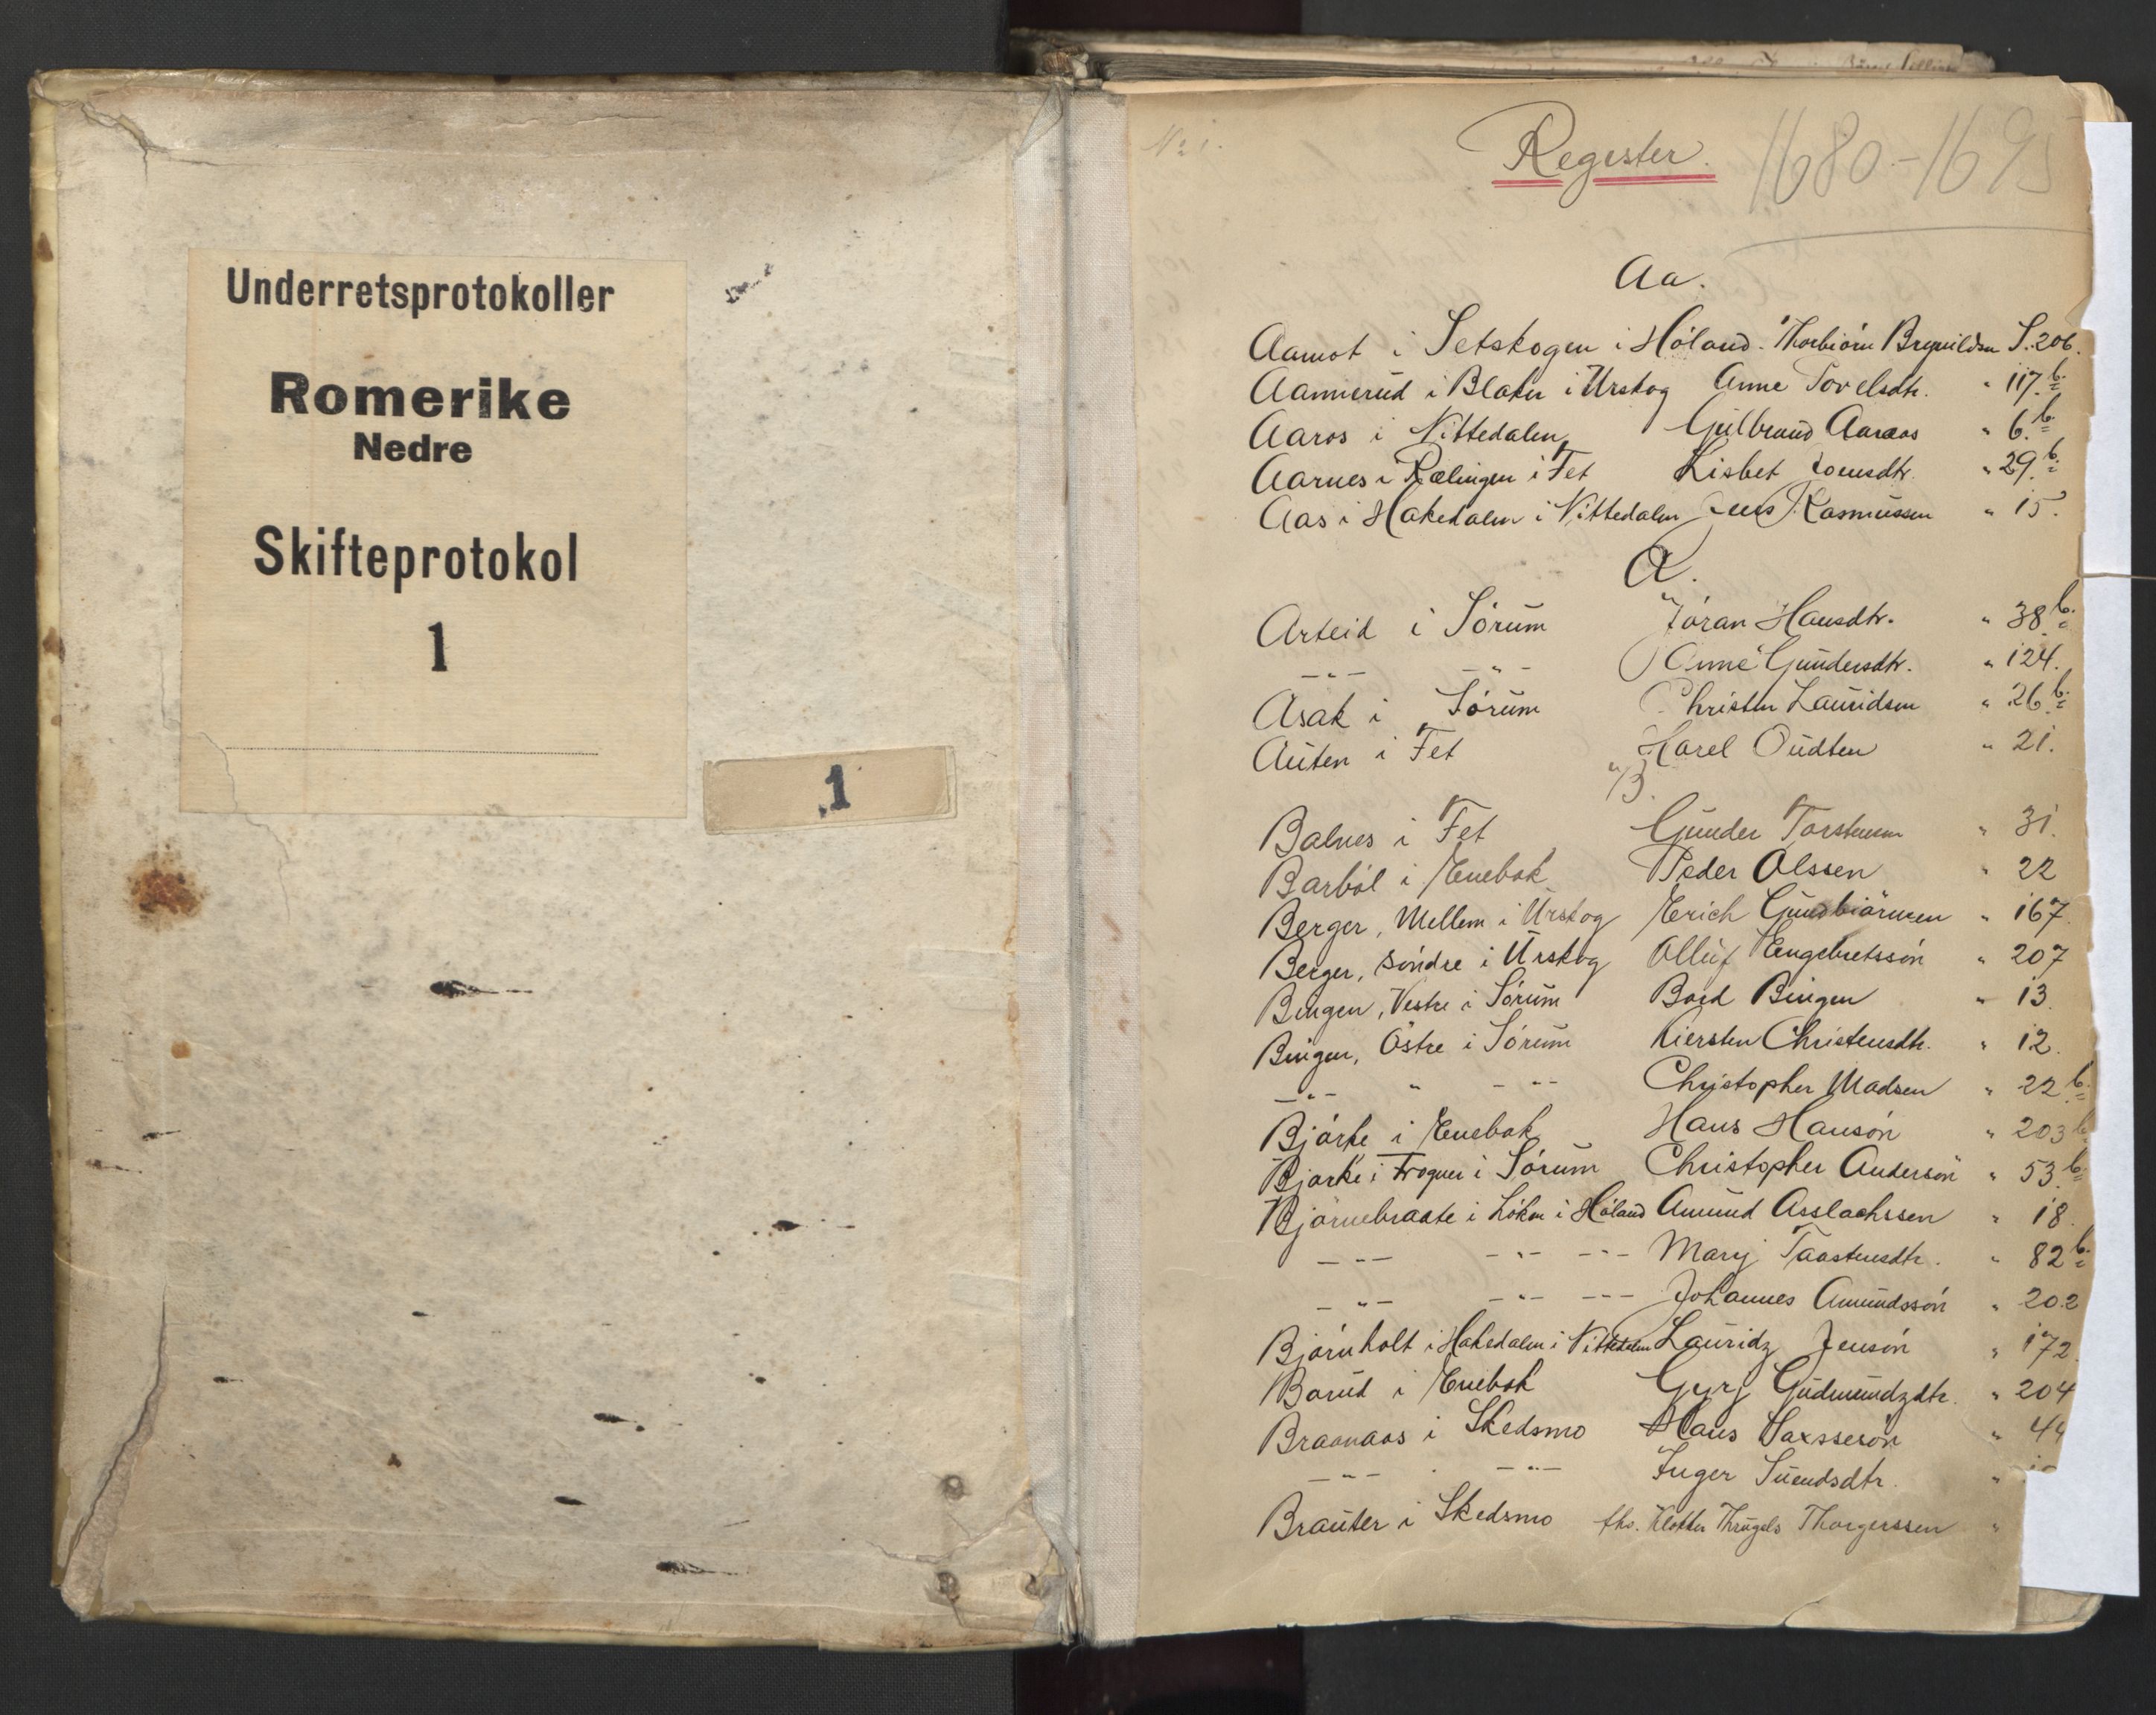 Underretsprotokoller
Romerike
Nedre
Skifteprotokol
1
1
No 1.
Register. 1680-1695
Aa.
Aamot i Setskogen i Höland. Thorbiörn Brynildsn S. 206.
Aamerud i Blaker i Urskog Anne Tovelsdtr. " 117.b.
Aaros i Nittedalen Gulbrand Aaraas " 6.b.
Aarnes i Rælingen i Fet Lisbet Joensdtr. " 29.b.
Aas i Hakedalen i Nittedalen Jens Rasmussen " 15.
A.
Arteid i Sörum Jöran Hansdtr. " 38.b.
-"- -"- Anne Gundersdtr. " 124.
Asak i Sörum Christen Lauridsen " 26.b.
Auten i Fet Karel Oudten " 21.
B.
Balnes i Fet Gunder Torstensen " 31.
Barböl i Enebak Peder Olssen " 22
Berger, Mellem i Urskog Erich Gundbiörnsen " 167.
Berger, söndre i Urskog Olluf Engebretssön " 207
Bingen, Vestre i Sörum Bord Bingen " 13.
Bingen, Östre i Sörum Kiersten Christensdtr. " 12.
-"- " -"- Christopher Madsen " 22.b.
Bjørke i Enebak Hans Hansön " 203b.
Bjørke i Frogner i Sörum Christopher Andersön " 53.b.
Björnebraate i Löken i Höland Amund Asslachssen " 18.
-"- -"- -"- Marij Taastensdtr. " 82.b.
-"- -"- -"- Johannes Amundssön " 202
Björnholt i Hakedalen i Nittedalen Lauridz Jensön " 172.
Borud i Enebak Gyrj Gudmundzdtr. " 204
Braanaas i Skedsmo Hans Saxssesön " 44
-"- -"- Inger Suendsdtr. "
Brauter i Skedsmo Thrugels Thorgerssen "